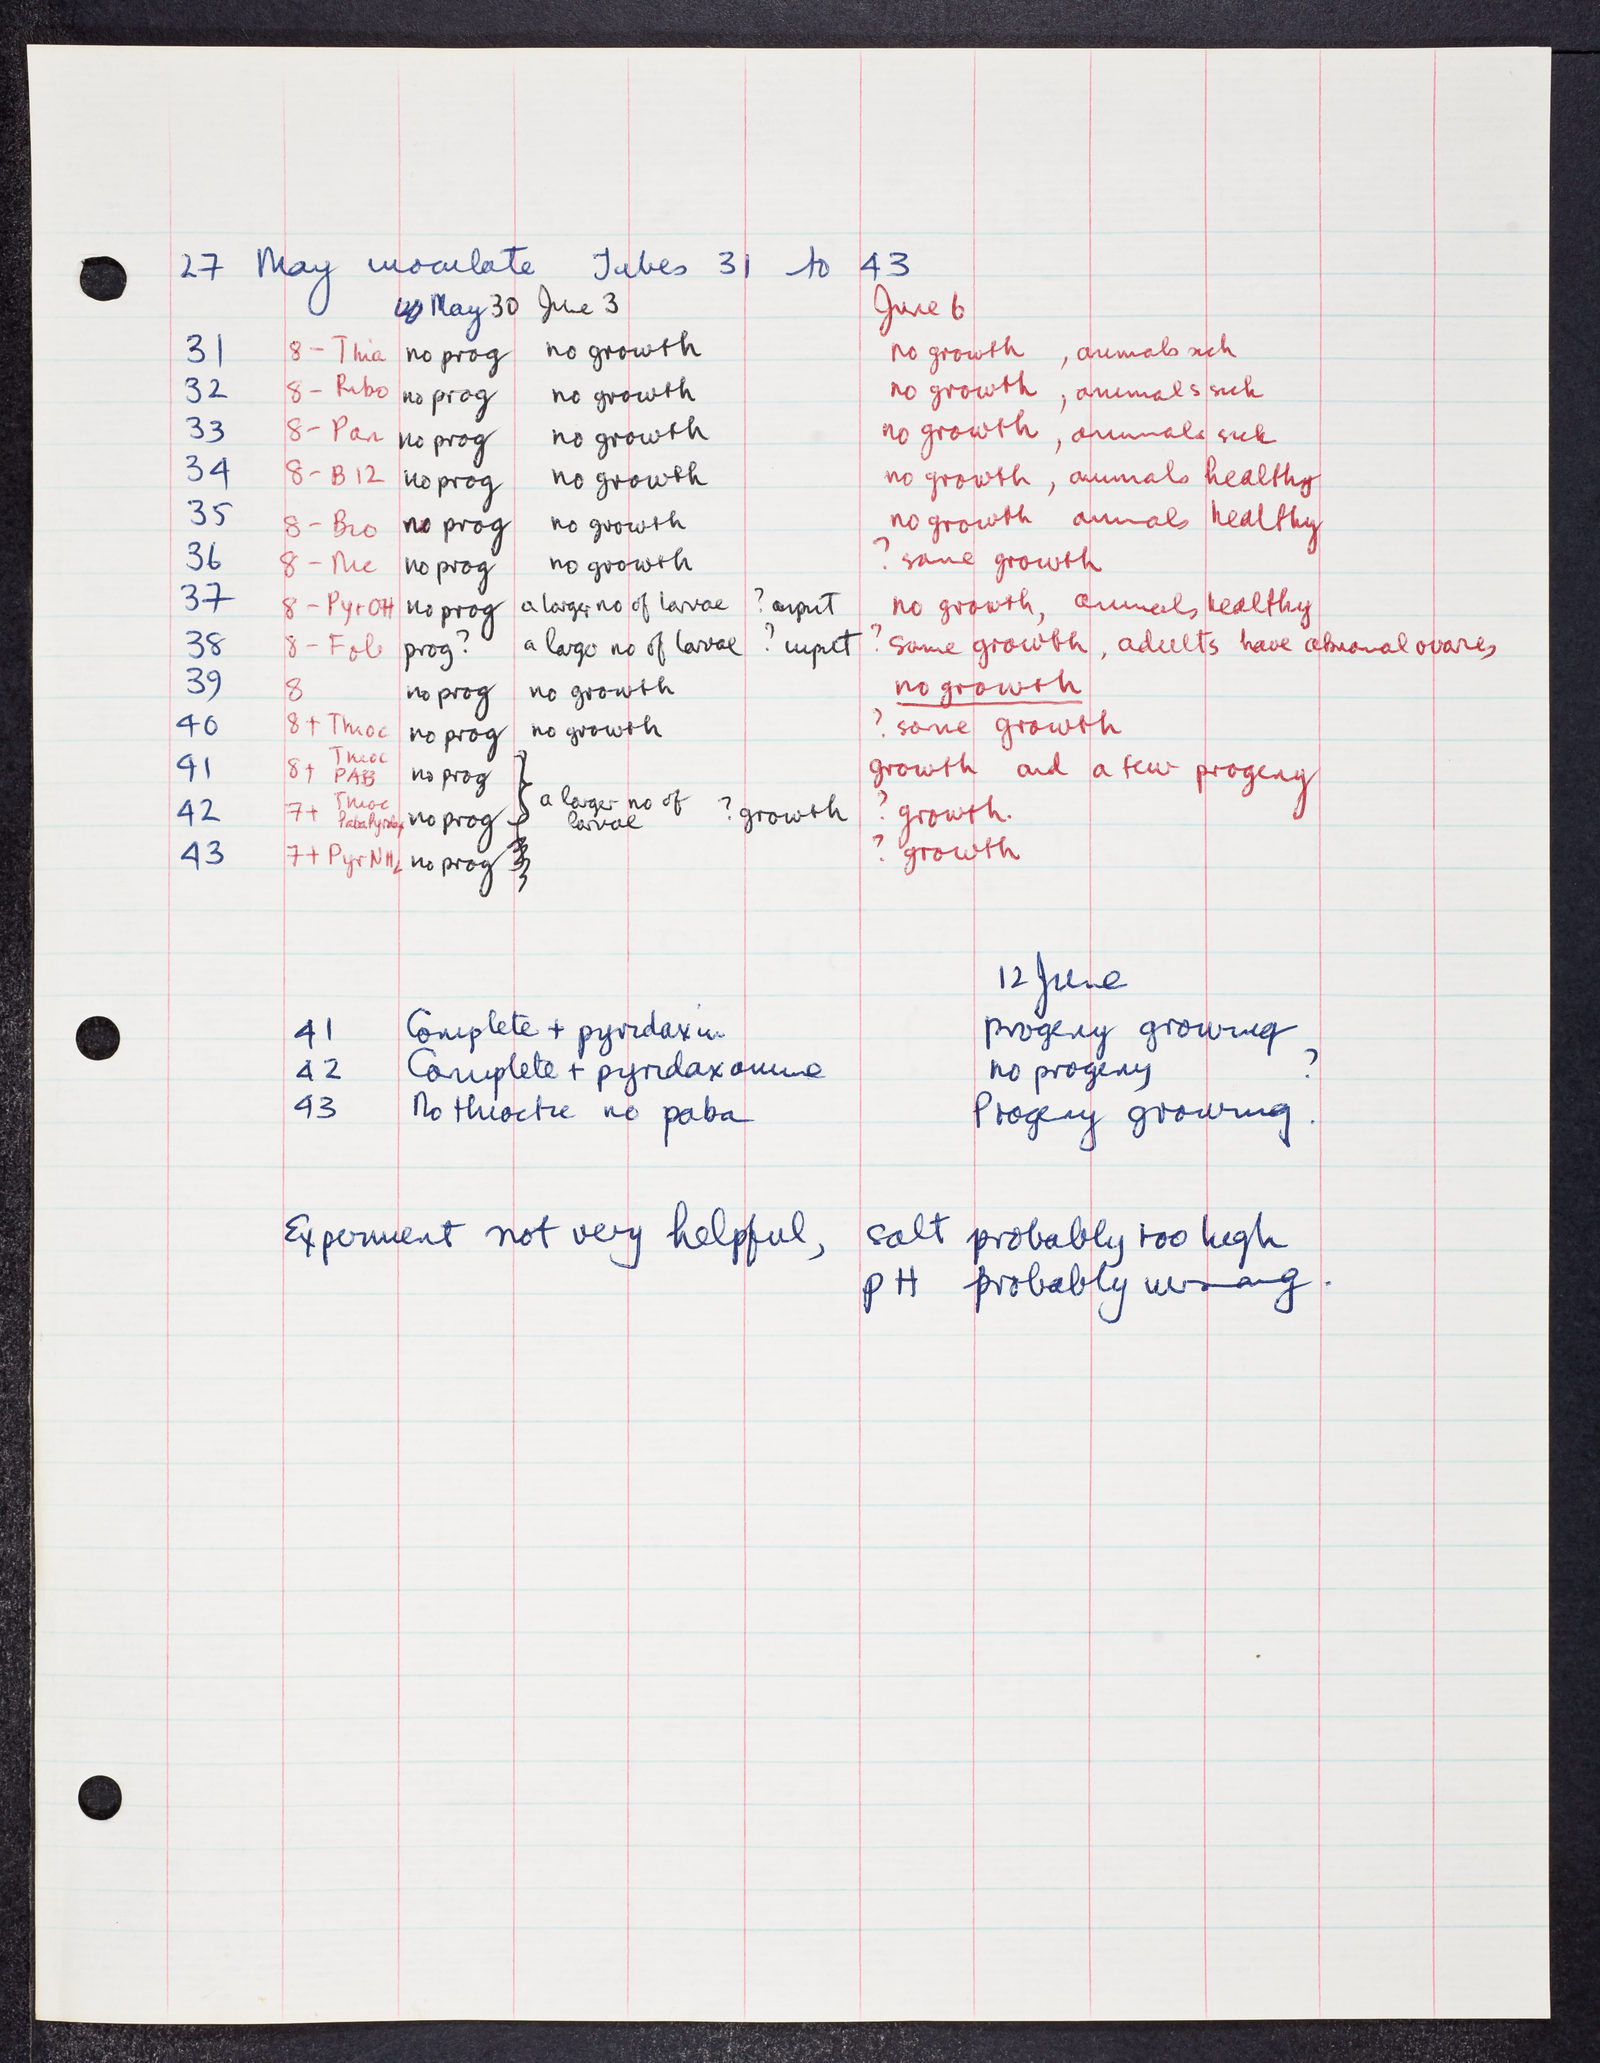 27 May inoculate Tubes 31 to 43
May 30 June 3 June 6
31 8 - Thia no prog no growth no growth , animals sick
32 8 - Ribo no prog no growth no growth , animals sick
33 8 - Pan no prog no growth no growth , animals sick
34 8 - B12 no prog no growth no growth , animals healthy
35 8 - Bio no prog no growth no growth animals healthy
36 8 - Nic no prog no growth ? some growth
37 8 - PyrOH no prog a larger no of larvae ? input no growth, animals healthy
38 8 - Fol prog? a large no of larvae ? input ? some growth, adults have abnormal ovaries
39 8 no prog no growth no growth
40 8 + Thioc no prog no growth ? some growth
41 8+ Thioc PAB no prog growth and a few progeny
42 7+ Thioc Paba no prog } a larger no of larvae ? growth ? growth.
43 7+ PyrNH2 no prog ? growth
12 June
41 Complete + pyridaxin progeny growing
42 Complete + pyridaxamine no progeny ?
43 No thioctic no paba Progeny growing.
Experiment not very helpful, salt probably too high
pH probably wrong.